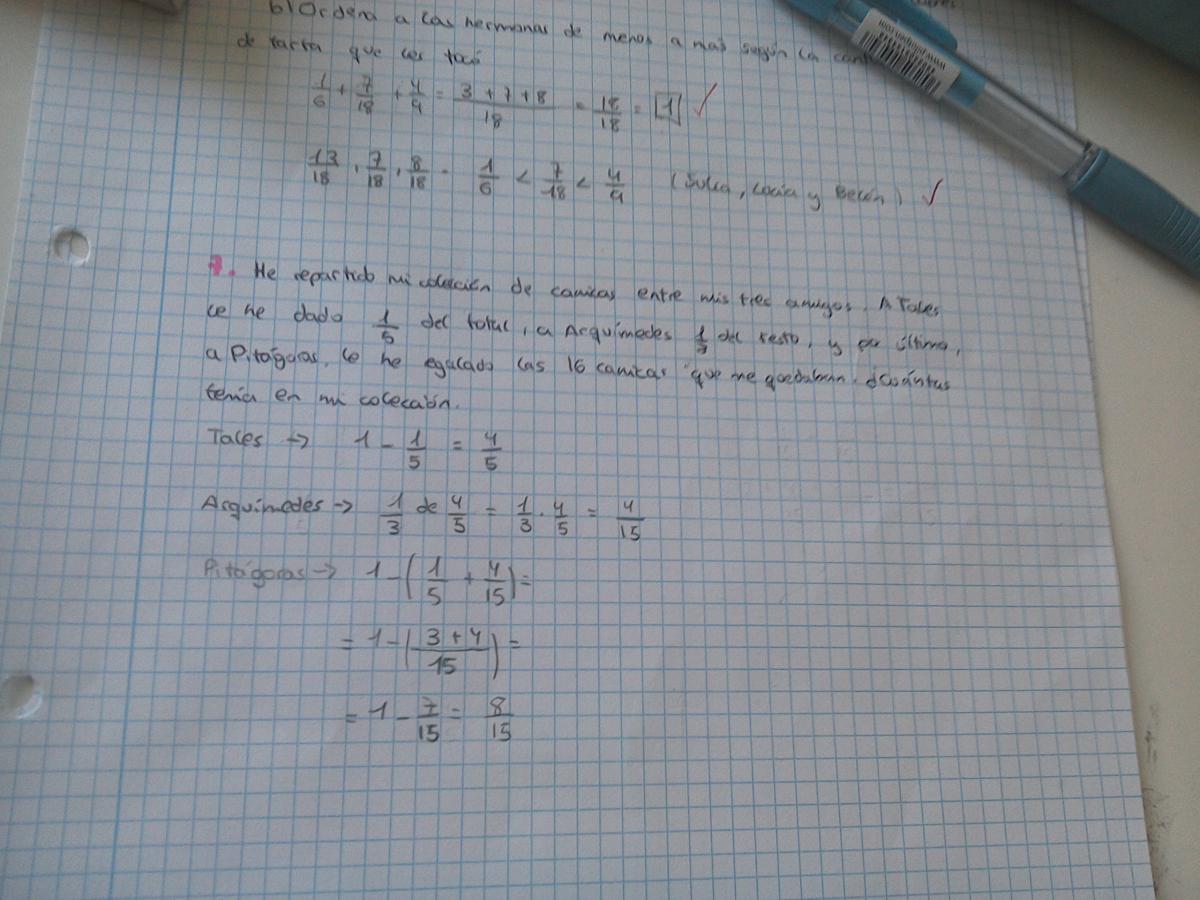 b) Ordena a las hermanas de menos a más según la cant
de tarta que les tocó
1/6 + 7/18 + 4/9 = (3 + 7 + 8)/18 = 18/18 = 1 ✓
13/18, 7/18, 8/18 · 1/6 < 7/18 < 4/9 (Julia, Lucía y Belén) ✓
7. He repartido mi colección de canicas entre mis tres amigos. A Tales
le he dado 1/5 del total, a Arquímedes 1/3 del resto, y por último,
a Pitágoras, le he egalado las 16 canicas que me quedaban. ¿Cuántas
tenía en mi colección.
Tales → 1 - 1/5 = 4/5
Arquímedes → 1/3 de 4/5 = 1/3 · 4/5 = 4/15
Pitágoras → 1 - (1/5 + 4/15) =
= 1 - ((3 + 4)/15) =
= 1 - 7/15 = 8/15